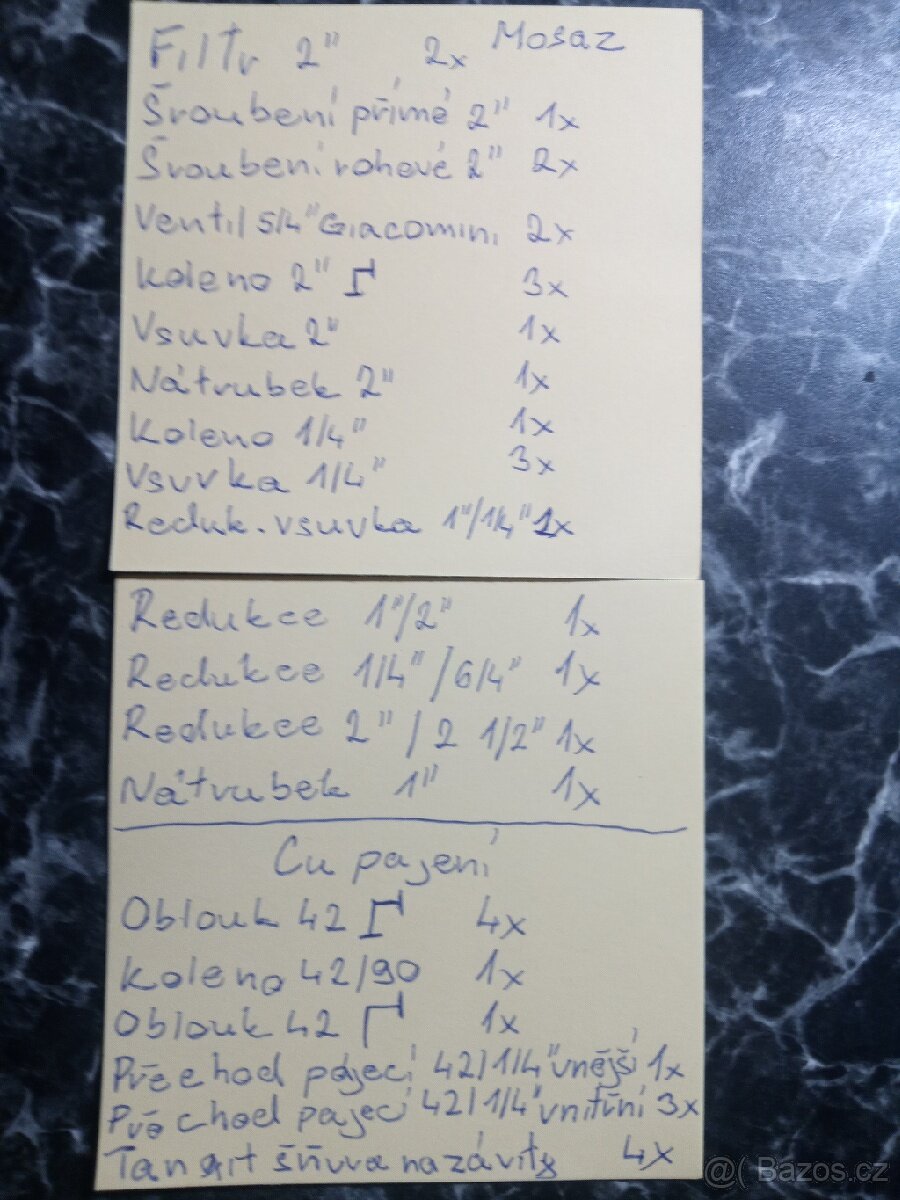 Filtr 2" 2x Mosaz
Šroubení přímé 2" 1x
Šroubení rohové 2" 2x
Ventil 5/4" Giacomini 2x
Koleno 2" 3x
Vsuvka 2" 1x
Nátrubek 2" 1x
Koleno 1/4" 1x
Vsuvka 1/4" 3x
Reduk. vsuvka 1"/1/4" 1x
Redukce 1"/2" 1x
Redukce 1/4"/6/4" 1x
Redukce 2"/2 1/2" 1x
Nátrubek 1" 1x
Cu pajení
Oblouk 42 4x
Koleno 42/90 1x
Oblouk 42 1x
Přechod pájecí 42/1/4" vnější 1x
Přechod pajecí 42/1/4" vnitřní 3x
Tangit šňůra na závity 4x
@( Bazos.cz